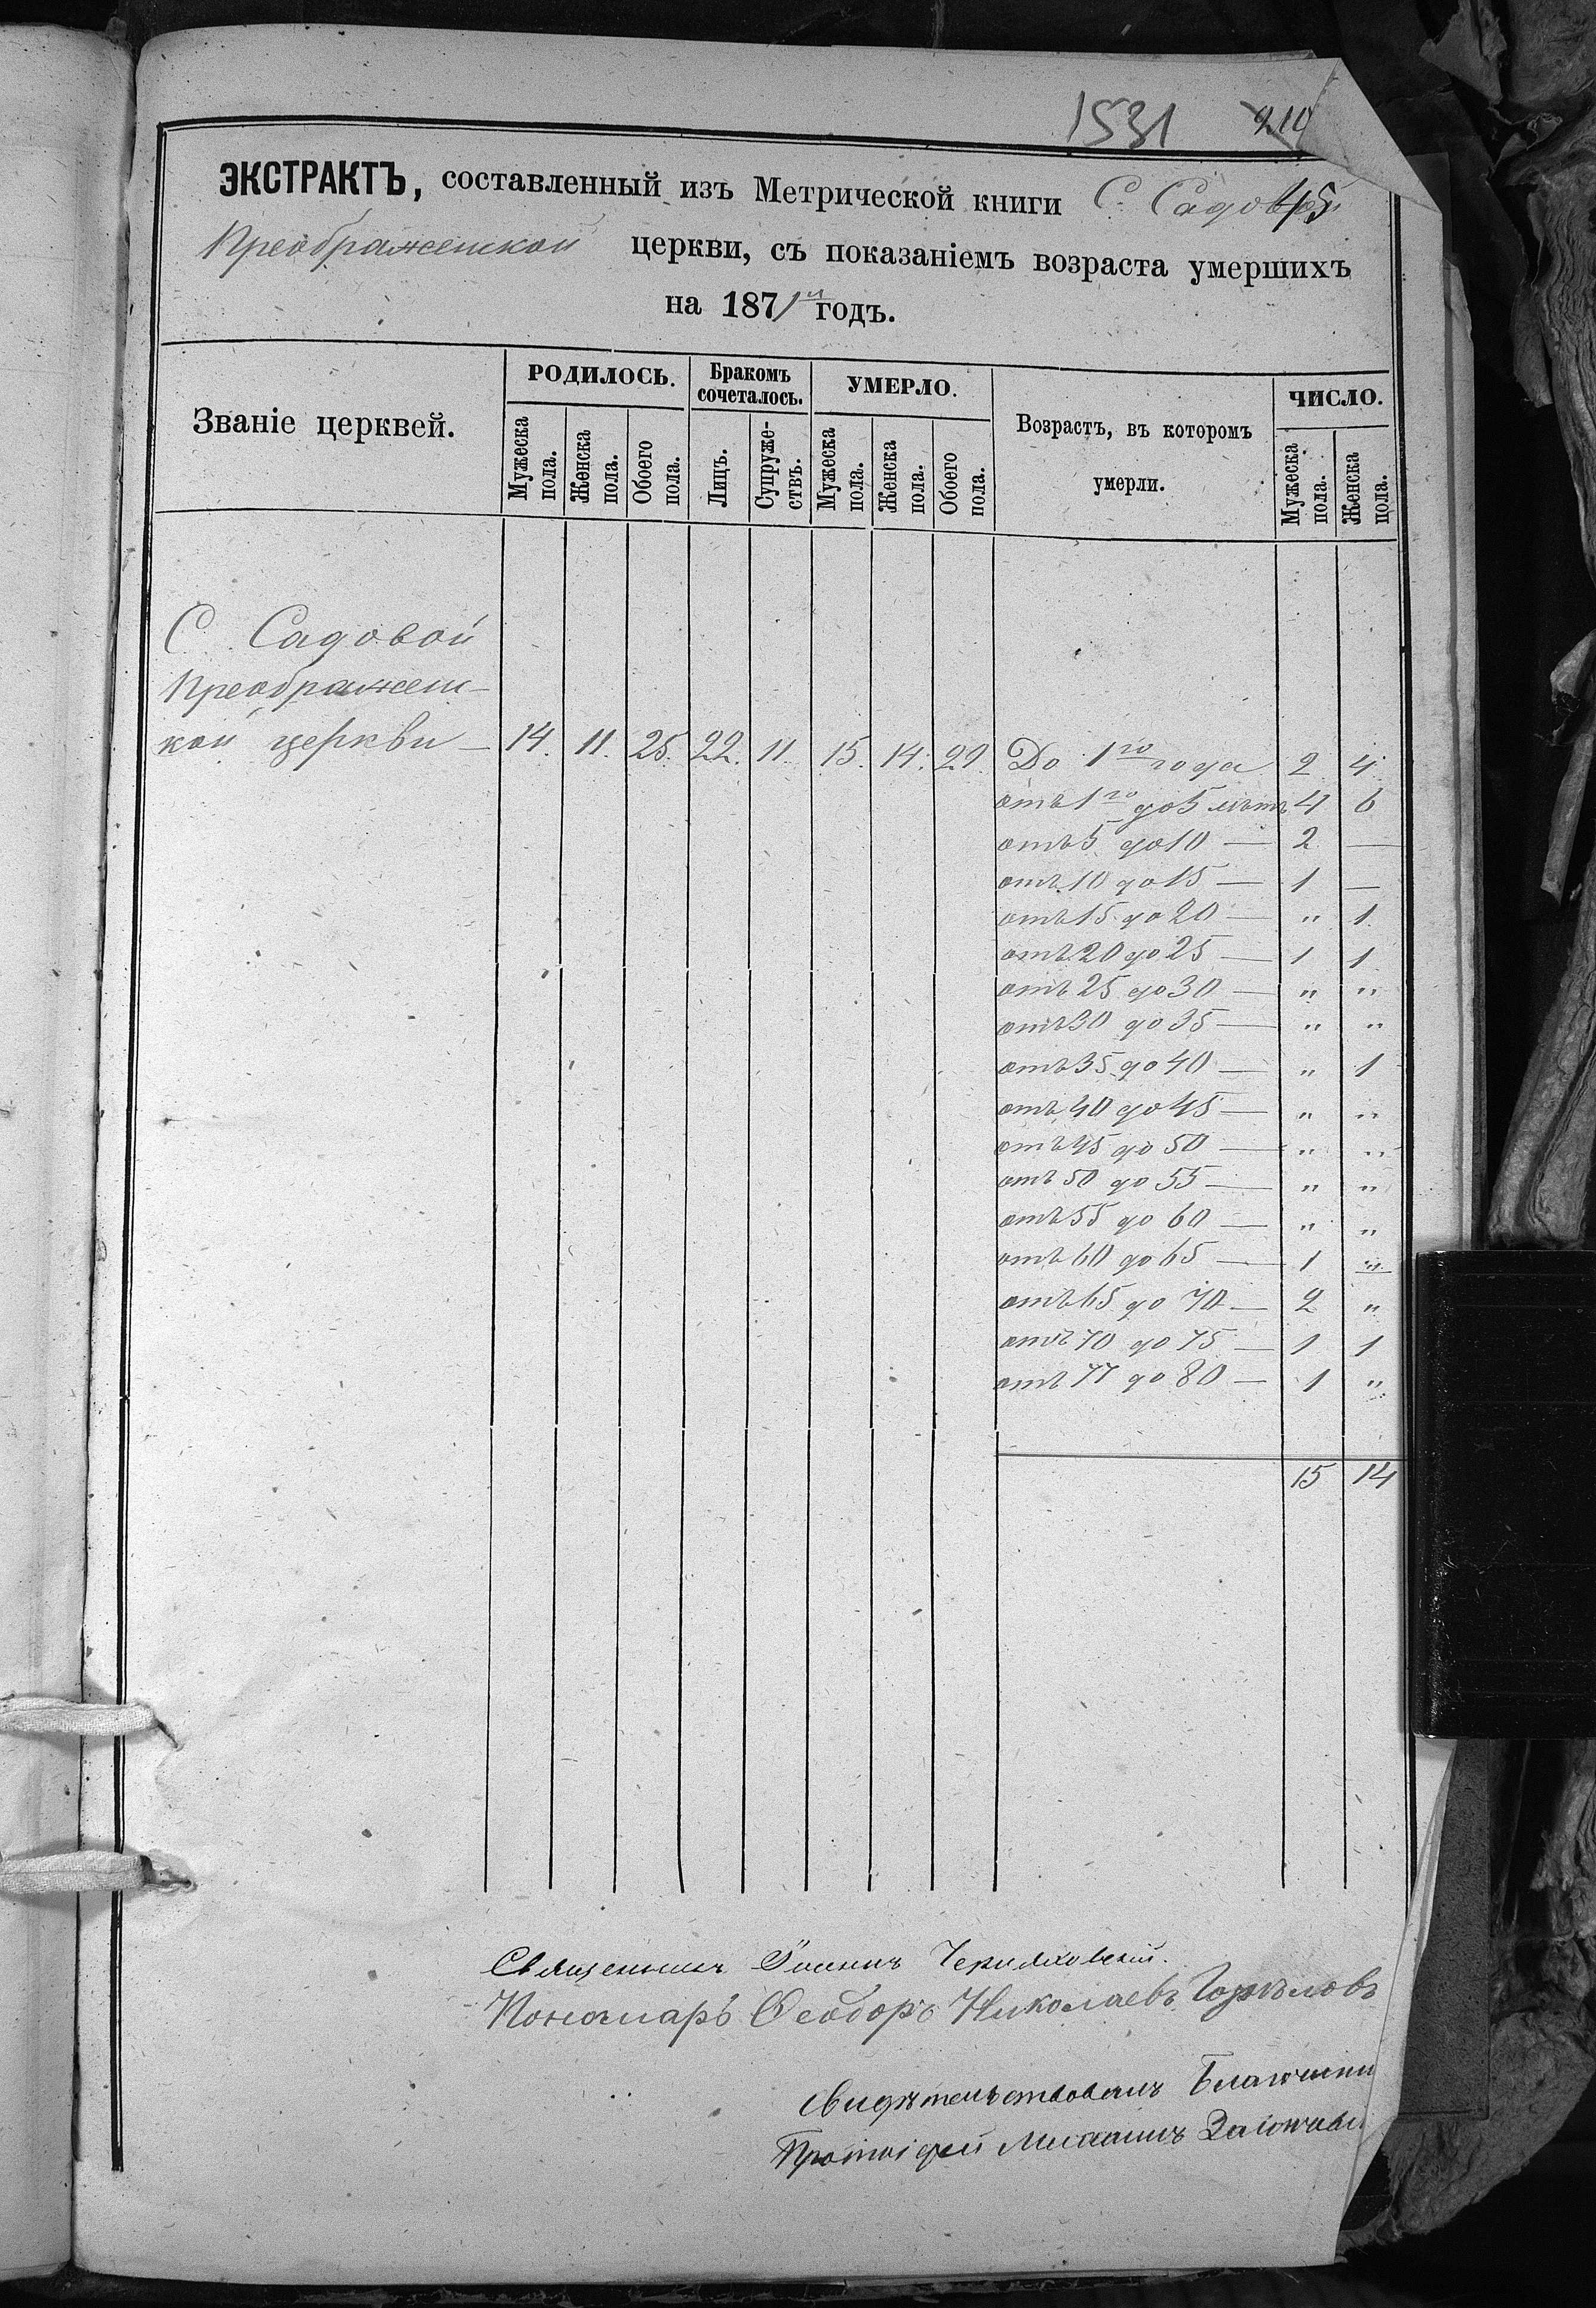 1531 210
45
ЭКСТРАКТЪ, составленный изъ Метрической книги С. Садовой
Преображенской церкви, съ показаніемъ возраста умершихъ
на 1871й годъ.
Званіе церквей.
РОДИЛОСЬ.
Мужеска пола.
Женска пола.
Обоего пола.
Бракомъ сочеталось.
Лицъ.
Супружествъ.
УМЕРЛО.
Мужеска пола.
Женска пола.
Обоего пола.
Возрастъ, въ которомъ
умерли.
ЧИСЛО.
Мужеска пола.
Женска пола.
С. Садовой
Преображен-
кой церкви — 14. 11. 25. 22. 11. 15. 14. 29. До 1го года 2 4
отъ 1го до 5 лѣтъ 4 6
отъ 5 до 10 — 2 —
отъ 10 до 15 — 1 —
отъ 15 до 20 — " 1
отъ 20 до 25 — 1 1
отъ 25 до 30 — " "
отъ 30 до 35 — " "
отъ 35 до 40 — " 1
отъ 40 до 45 — " "
отъ 45 до 50 — " "
отъ 50 до 55 — " "
отъ 55 до 60 — " "
отъ 60 до 65 — 1 "
отъ 65 до 70 — 2 "
отъ 70 до 75 — 1 1
отъ 77 до 80 — 1 "
15 14
Священникъ Іоаннъ Черняховскій.
Пономарь Ѳеодоръ Николаевъ
Свидѣтельствовалъ Благочин
Протоіерей Михаилъ